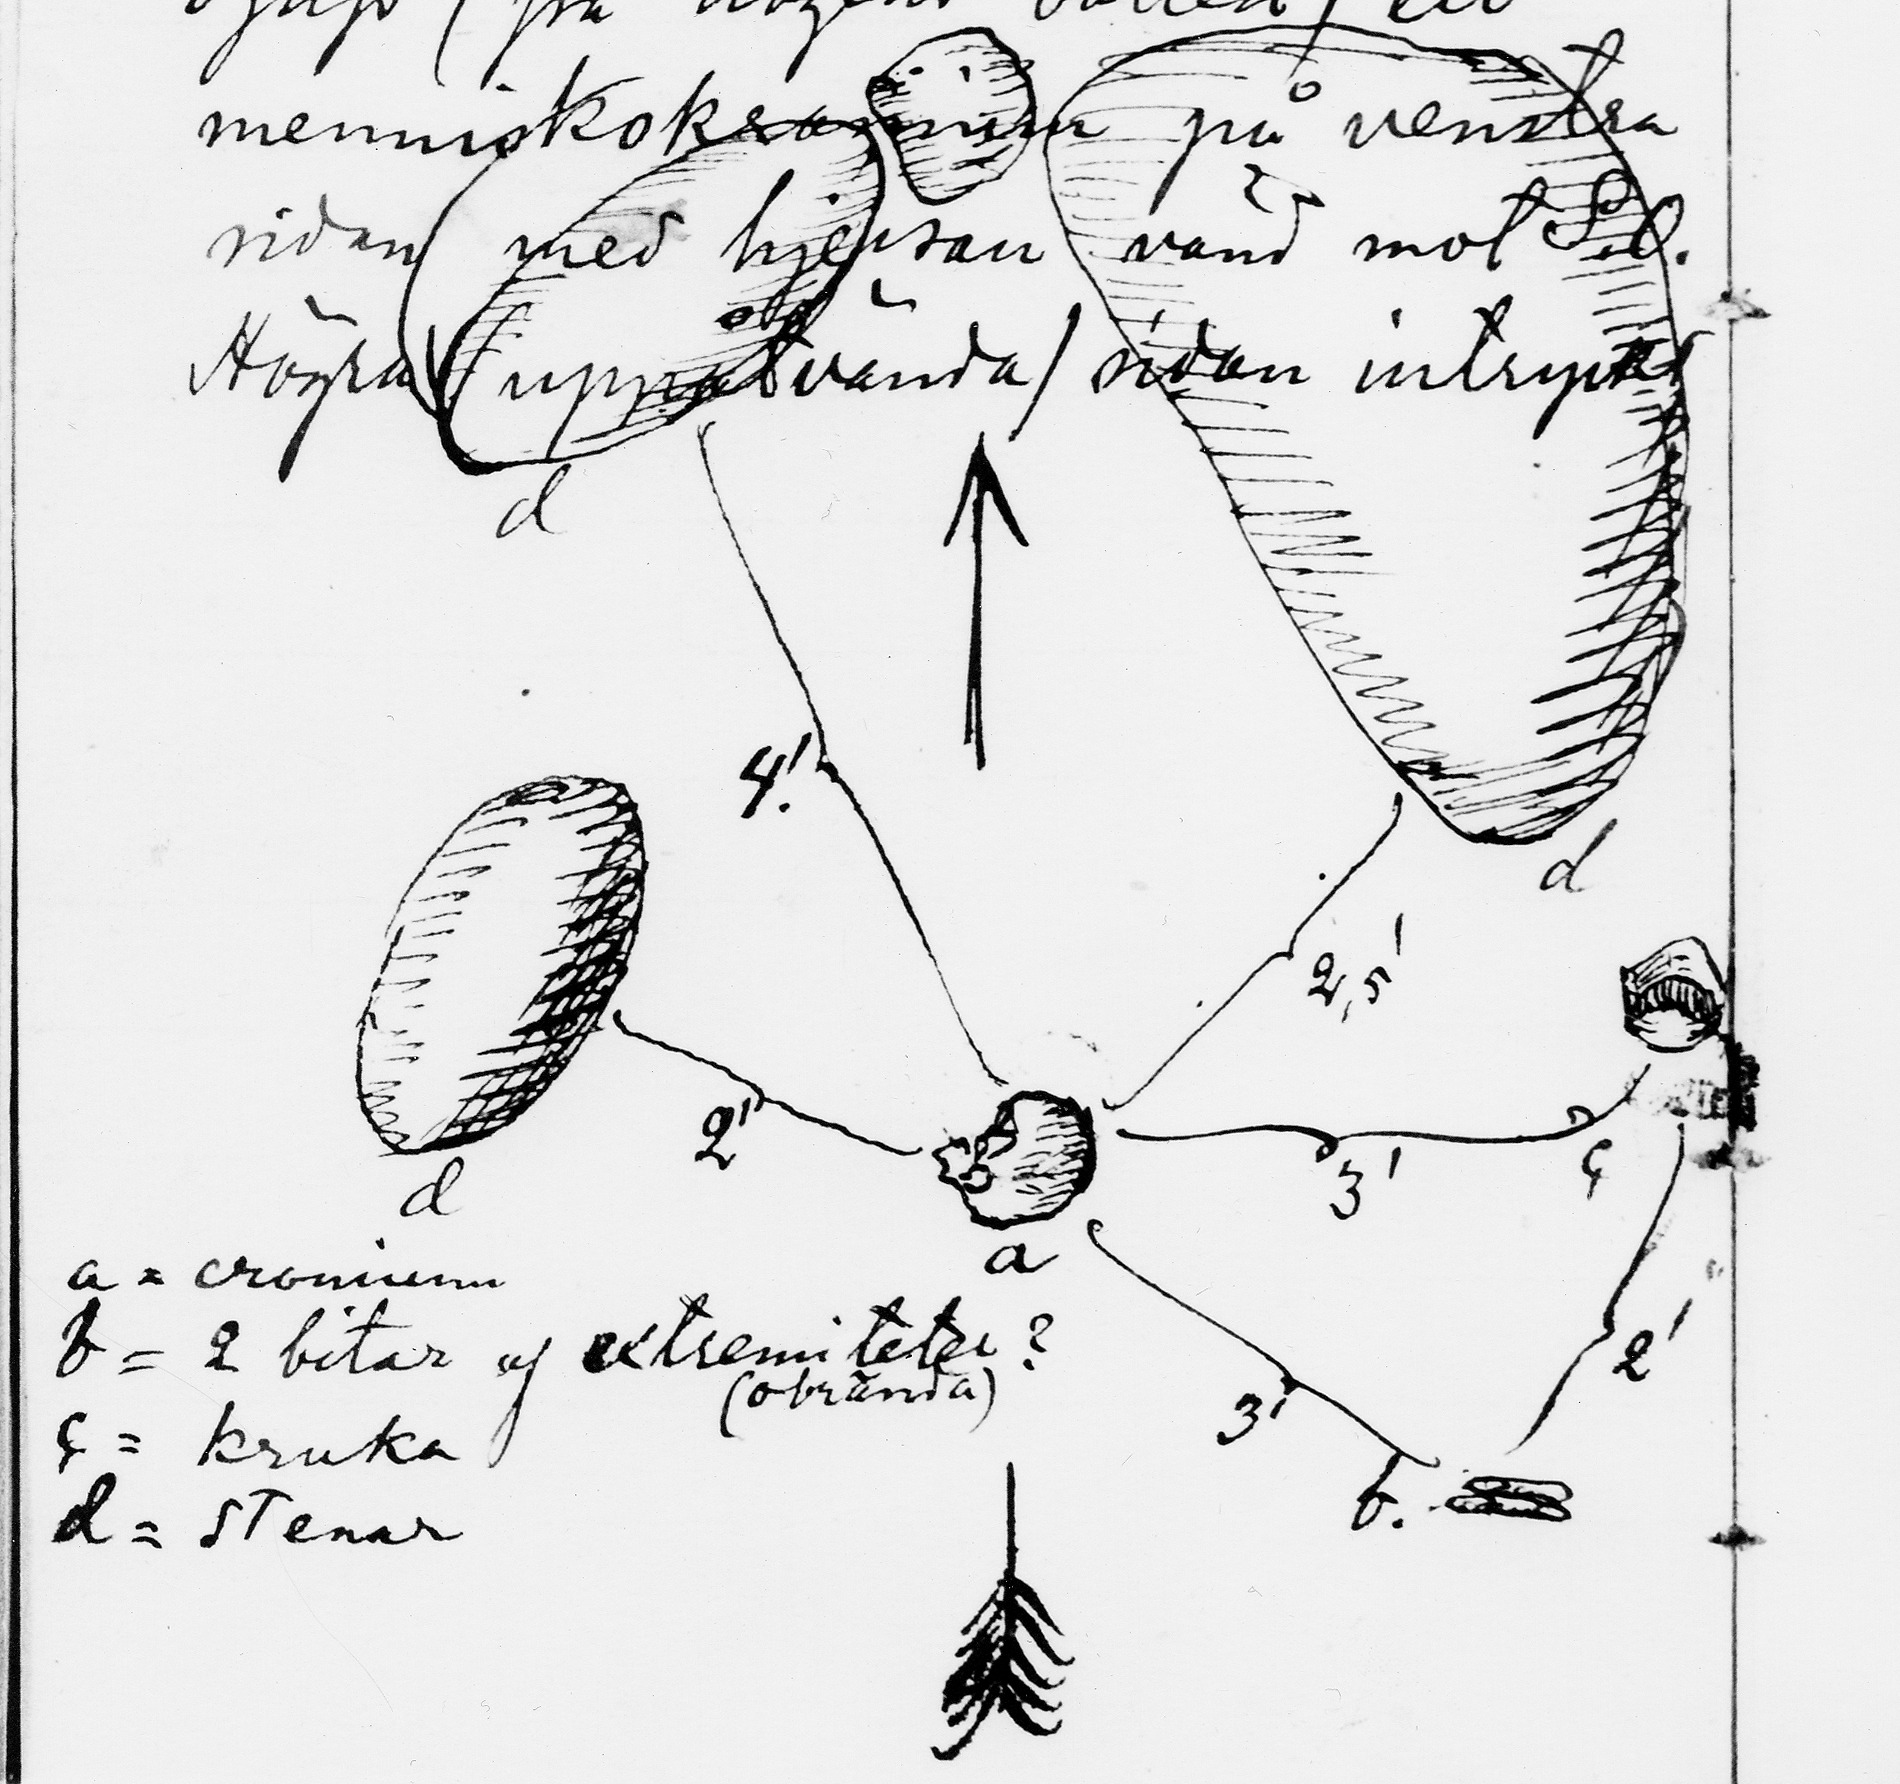 menniskokranium på venstra
sidan med hjessan vänd mot S.O.
Högra / uppåtvända / sidan intryckt
d
4'
d
2,5'
2'
3'
ç
d
a
2'
3'
b.
a = cranium
b = 2 bitar af extremiteter?
(obrända)
ç = kruka
d = stenar